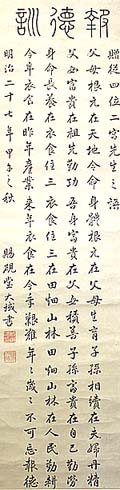 報德訓
贈從四位二宮先生之語
父母根元在天地令命身體根元在父母生育子孫相續在夫婦丹精
父母富貴在祖先勤功吾身富貴在父母積善子孫富貴在自己勤勞
身命長養在衣食住三衣食住三在田畑山林田畑山林在人民勤耕
今年衣食在昨年產業來年衣食在今年艱難年々歲々不可忘報德
明治二十七年甲午之秋 賜硯堂大域書